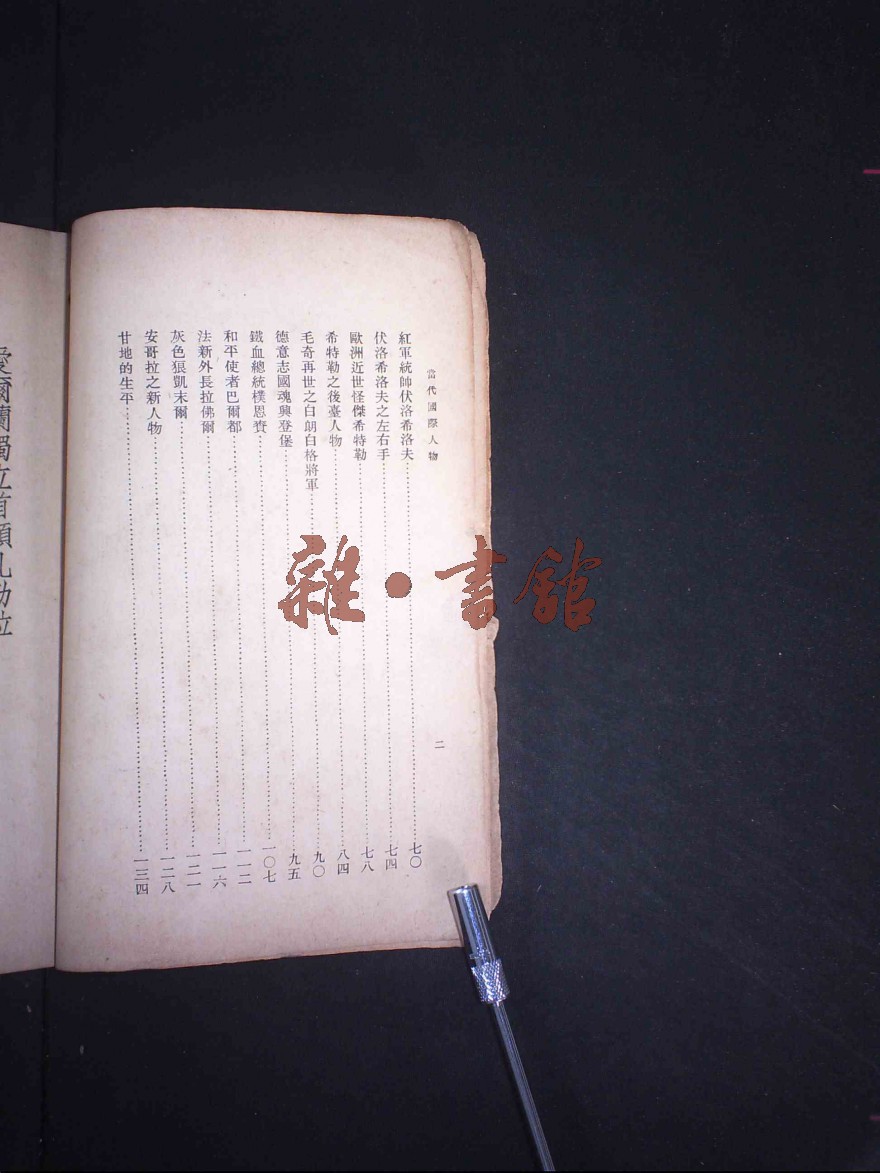 當代國際人物
二
紅軍統帥伏洛希洛夫……七〇
伏洛希洛夫之左右手……七四
歐洲近世怪傑希特勒……七八
希特勒之後臺人物……八四
毛奇再世之白朗白格將軍……九〇
德意志國魂興登堡……九五
鐵血總統樸恩賚……一〇七
和平使者巴爾都……一一二
法新外長拉佛爾……一一六
灰色狼凱末爾……一二一
安哥拉之新人物……一二八
甘地的生平……一三四
愛爾蘭獨立首領
雜·書館